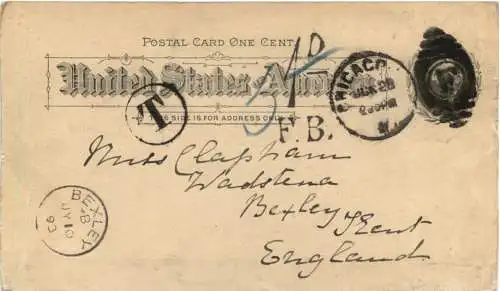 POSTAL CARD ONE CENT.
United States America
THIS SIDE IS FOR ADDRESS ONLY
T
1D
F.B.
CHICAGO
Miss Clapham
Wadstena
Bexley Kent
England
BEXLEY
JY 10
93